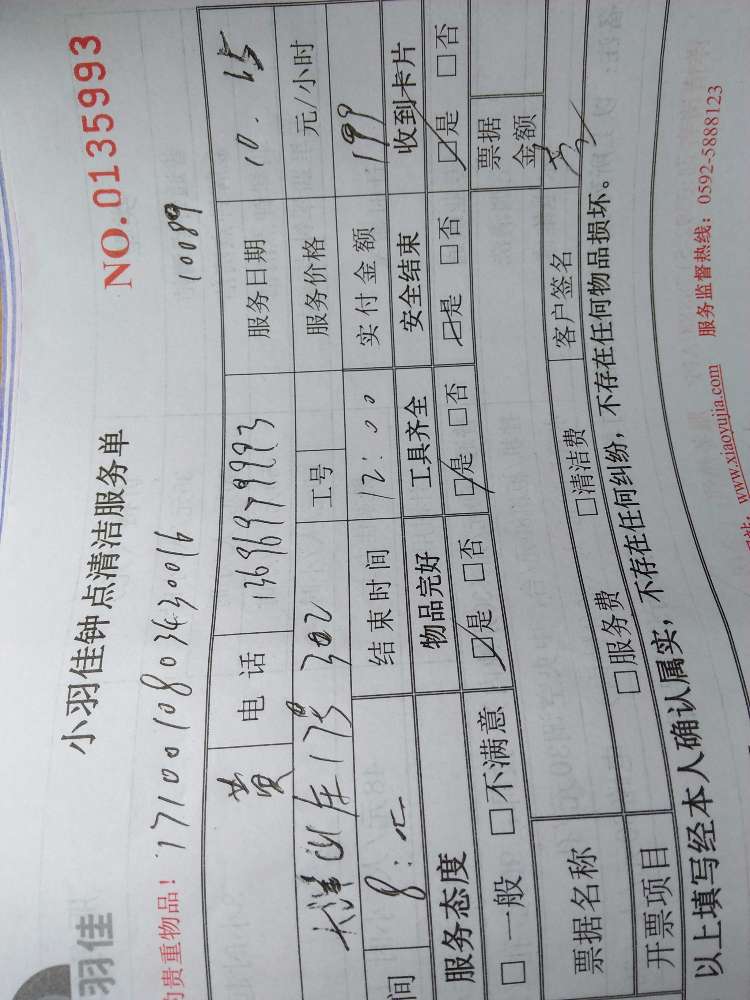 羽佳
小羽佳钟点清洁服务单
NO.0135993
的贵重物品！ 1710010803430016 10089
黄 电话 13696979223 服务日期 10.15
17号302 工号 服务价格 元/小时
间 8: 结束时间 12:00 实付金额 199
服务态度 物品完好 工具齐全 安全结束 收到卡片
□一般 □不满意 ☑是 □否 ☑是 □否 ☑是 □否 ☑是 □否
票据名称 票据金额
开票项目 □服务费 □清洁费 客户签名
以上填写经本人确认属实，不存在任何纠纷，不存在任何物品损坏。
www.xiaoyujia.com 服务监督热线：0592-5888123